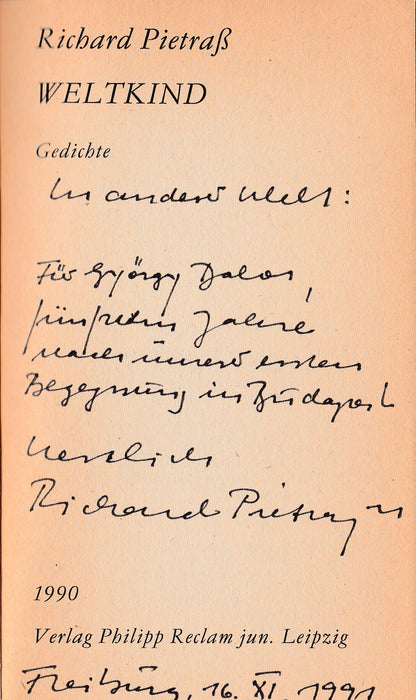 Richard Pietraß
WELTKIND
Gedichte
In anderer Welt:
Für György Dalos,
fünfzehn Jahre
nach unserer ersten
Begegnung in Budapest
herzlich
Richard Pietraß
1990
Verlag Philipp Reclam jun. Leipzig
Freiburg, 16. XI. 1991